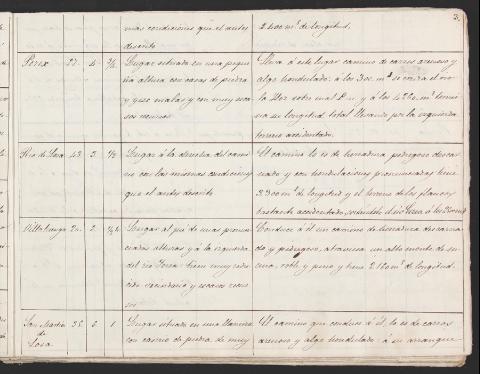 3.
mas condiciones que el antes
descrito
2.400 m.ˢ de longitud.
Perex 27 4 ½ Lugar situado en una peque
ña altura con casas de piedra
y yeso malas y con muy esca
sos recursos
Lleva á este lugar camino de carros arenoso y
algo hondulado: á los 300 m.ˢ se cruza el rio
y á los 4270 m.ˢ termi
na su longitud total llevando por la izquierda
terreno accidentado.
Rio de Losa 43 3 ½ Lugar á la derecha del cami
no con las mismas condiciones
que el antes descrito
El camino lo es de herradura pedregoso descar
nado y con hondulaciones pronunciadas tiene
2300 m.ˢ de longitud y el terreno de los flancos
bastante accidentado,
Villaluenga 20 2 Lugar al pie de unas pronun
ciadas alturas y á la izquierda
del rio tiene muy redu
cido vecindario y escasos recur
sos
Conduce á él un camino de herradura descarna
do y pedregoso, atraviesa un alto monte de en
cina, roble y pino y tiene 2.120 m.ˢ de longitud.
San Martin
de
Losa 35 6 1 Lugar situado en una llanura
con casas de piedra de muy
El camino que conduce á él, lo es de carros
arenoso y algo hondulado á su arranque